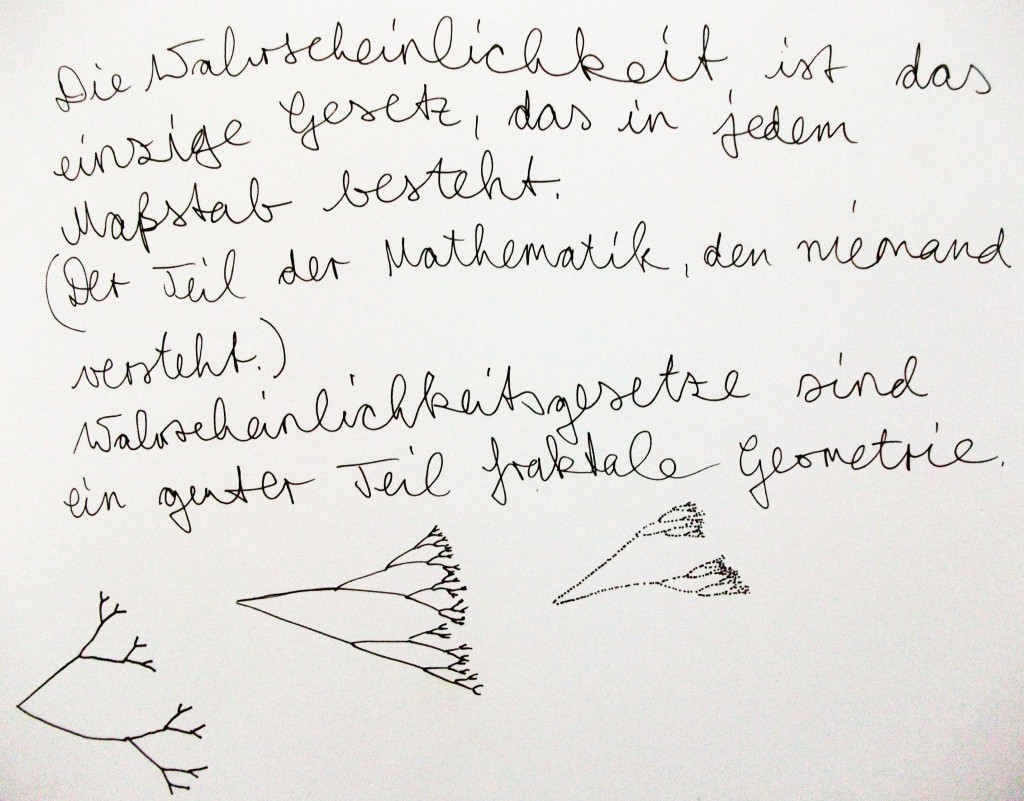 Die Wahrscheinlichkeit ist das
einzige Gesetz, das in jedem
Maßstab besteht.
(Der Teil der Mathematik, den niemand
versteht.)
Wahrscheinlichkeitsgesetze sind
ein guter Teil fraktale Geometrie.